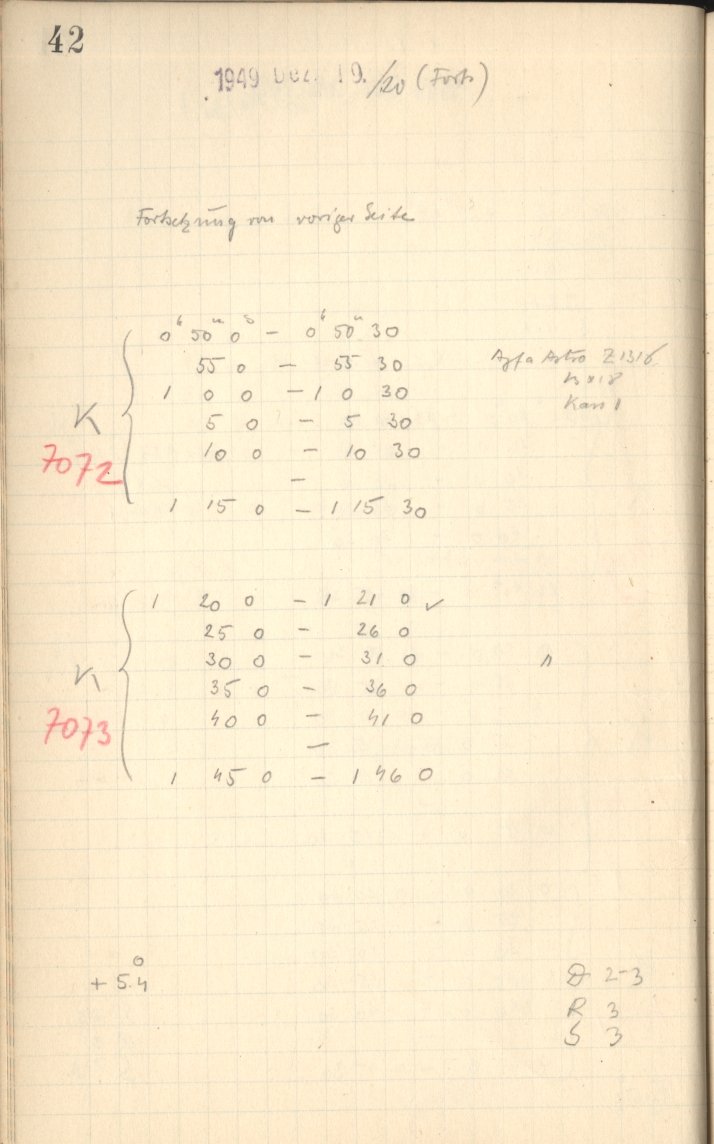 42
1949 Dez. 19./20 (Forts)
Fortsetzung von voriger Seite
0ʰ 50ᵐ 0ˢ — 0ʰ 50ᵐ 30
55 0 — 55 30
1 0 0 — 1 0 30
5 0 — 5 30
10 0 — 10 30
—
1 15 0 — 1 15 30
K
7072
Agfa Astro Z1318
13 x 18
Kass 1
1 20 0 — 1 21 0 ✓
25 0 — 26 0
30 0 — 31 0
35 0 — 36 0
40 0 — 41 0
—
1 45 0 — 1 46 0
K
7073
"
+ 5.°4
D 2-3
R 3
S 3